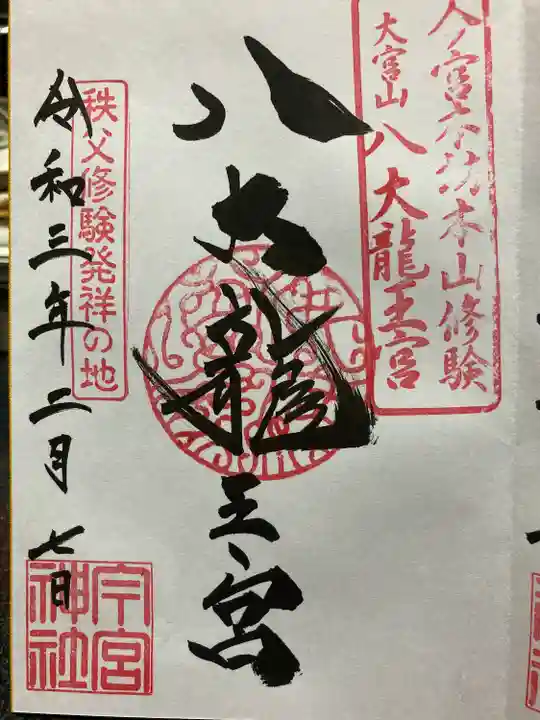 今宮坊 本山修験
大宮山
八大龍王宮
八大龍王宮
秩父修験発祥の地
令和三年二月七日
今宮
神社